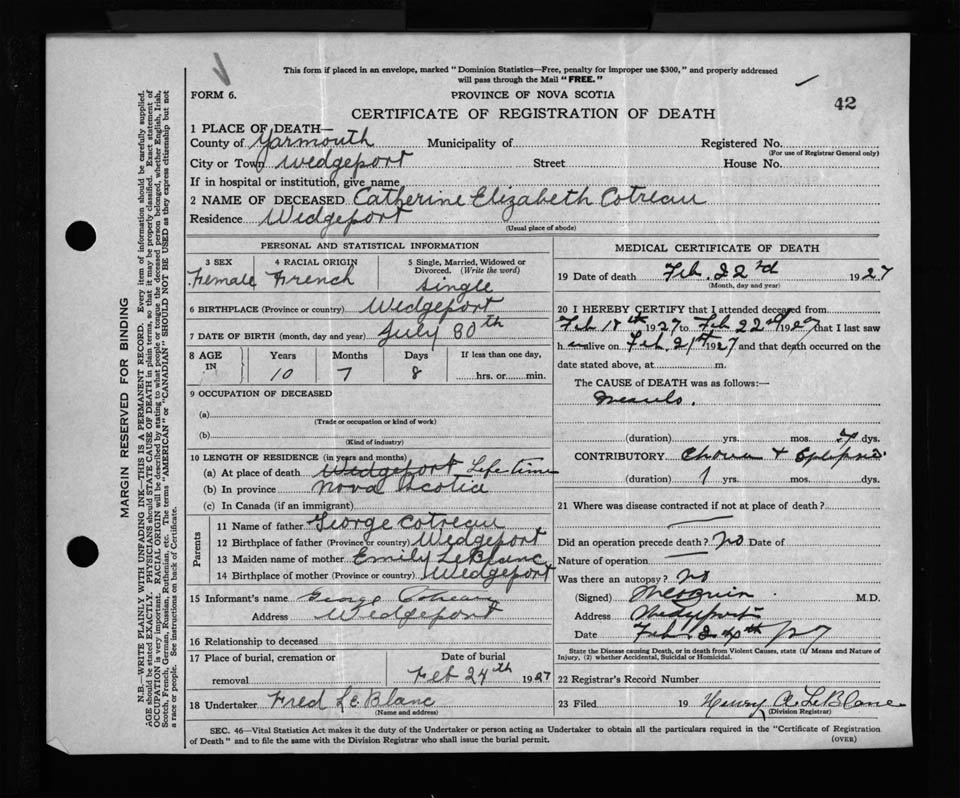 This form if placed in an envelope, marked "Dominion Statistics—Free, penalty for improper use $300," and properly addressed
will pass through the Mail "FREE."
FORM 6.
PROVINCE OF NOVA SCOTIA
42
CERTIFICATE OF REGISTRATION OF DEATH
1 PLACE OF DEATH—
County of Yarmouth Municipality of Registered No.
(For use of Registrar General only)
City or Town Wedgeport Street House No.
If in hospital or institution, give name
2 NAME OF DECEASED Catherine Elizabeth Cotreau
Residence Wedgeport
(Usual place of abode)
PERSONAL AND STATISTICAL INFORMATION
3 SEX 4 RACIAL ORIGIN 5 Single, Married, Widowed or
Divorced. (Write the word)
Female French Single
6 BIRTHPLACE (Province or country) Wedgeport
7 DATE OF BIRTH (month, day and year) July 30th
8 AGE IN Years Months Days If less than one day,
10 7 8 hrs. or min.
9 OCCUPATION OF DECEASED
(a)
(Trade or occupation or kind of work)
(b)
(Kind of industry)
10 LENGTH OF RESIDENCE (in years and months)
(a) At place of death Wedgeport Life time
(b) In province Nova Scotia
(c) In Canada (if an immigrant)
Parents
11 Name of father George Cotreau
12 Birthplace of father (Province or country) Wedgeport
13 Maiden name of mother Emily LeBlanc
14 Birthplace of mother (Province or country) Wedgeport
15 Informant's name George Cotreau
Address Wedgeport
16 Relationship to deceased
17 Place of burial, cremation or Date of burial
removal Feb 24th 1927
18 Undertaker Fred Le Blanc
(Name and address)
MEDICAL CERTIFICATE OF DEATH
19 Date of death Feb. 22nd 1927
(Month, day and year)
20 I HEREBY CERTIFY that I attended deceased from
Feb 18th 1927 to Feb 22nd 1927 that I last saw
her alive on Feb. 21st 1927 and that death occurred on the
date stated above, at m.
The CAUSE of DEATH was as follows:—
Measles.
(duration) yrs. mos. 7 dys.
CONTRIBUTORY Chorea + Epilepsie
(duration) 1 yrs. mos. dys.
21 Where was disease contracted if not at place of death?
Did an operation precede death? No Date of
Nature of operation
Was there an autopsy? No
(Signed) M.D.
Address Wedgeport
Date Feb 24th /27
State the Disease causing Death, or in death from Violent Causes, state (1) Means and Nature of
Injury, (2) whether Accidental, Suicidal or Homicidal.
22 Registrar's Record Number
23 Filed 19 Henry A. LeBlanc
(Division Registrar)
SEC. 46—Vital Statistics Act makes it the duty of the Undertaker or person acting as Undertaker to obtain all the particulars required in the "Certificate of Registration
of Death" and to file the same with the Division Registrar who shall issue the burial permit.
(OVER)
MARGIN RESERVED FOR BINDING
N.B.—WRITE PLAINLY WITH UNFADING INK—THIS IS A PERMANENT RECORD. Every item of information should be carefully supplied.
AGE should be stated EXACTLY. PHYSICIANS should STATE CAUSE OF DEATH in plain terms, so that it may be properly classified. Exact statement of
OCCUPATION is very important. RACIAL ORIGIN will be described by stating to what people or tongue the deceased person belonged, whether English, Irish,
Scotch, French, German, Russian, Ruthenian, etc. The terms "AMERICAN" or "CANADIAN" SHOULD NOT BE USED as they express citizenship but not
a race or people. See instructions on back of Certificate.